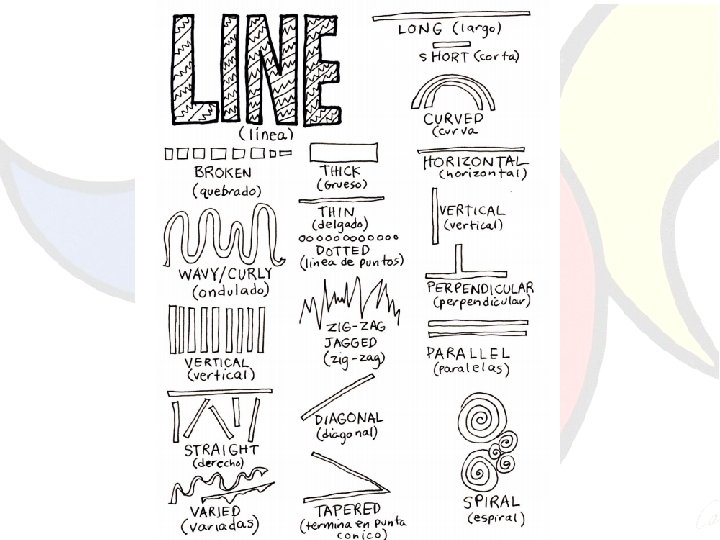 LINE
(línea)
LONG (largo)
SHORT (corta)
CURVED
(curva
BROKEN
(quebrado)
THICK
(Grueso)
HORIZONTAL
(horizontal)
THIN
(delgado)
DOTTED
(línea de puntos)
VERTICAL
(vertical)
WAVY/CURLY
(ondulado)
PERPENDICULAR
(perpendicular)
ZIG-ZAG
JAGGED
(zig-zag)
VERTICAL
(vertical)
PARALLEL
(paralelas)
STRAIGHT
(derecho)
DIAGONAL
(diagonal)
VARIED
(variadas)
TAPERED
(termina en punta
conico)
SPIRAL
(espiral)